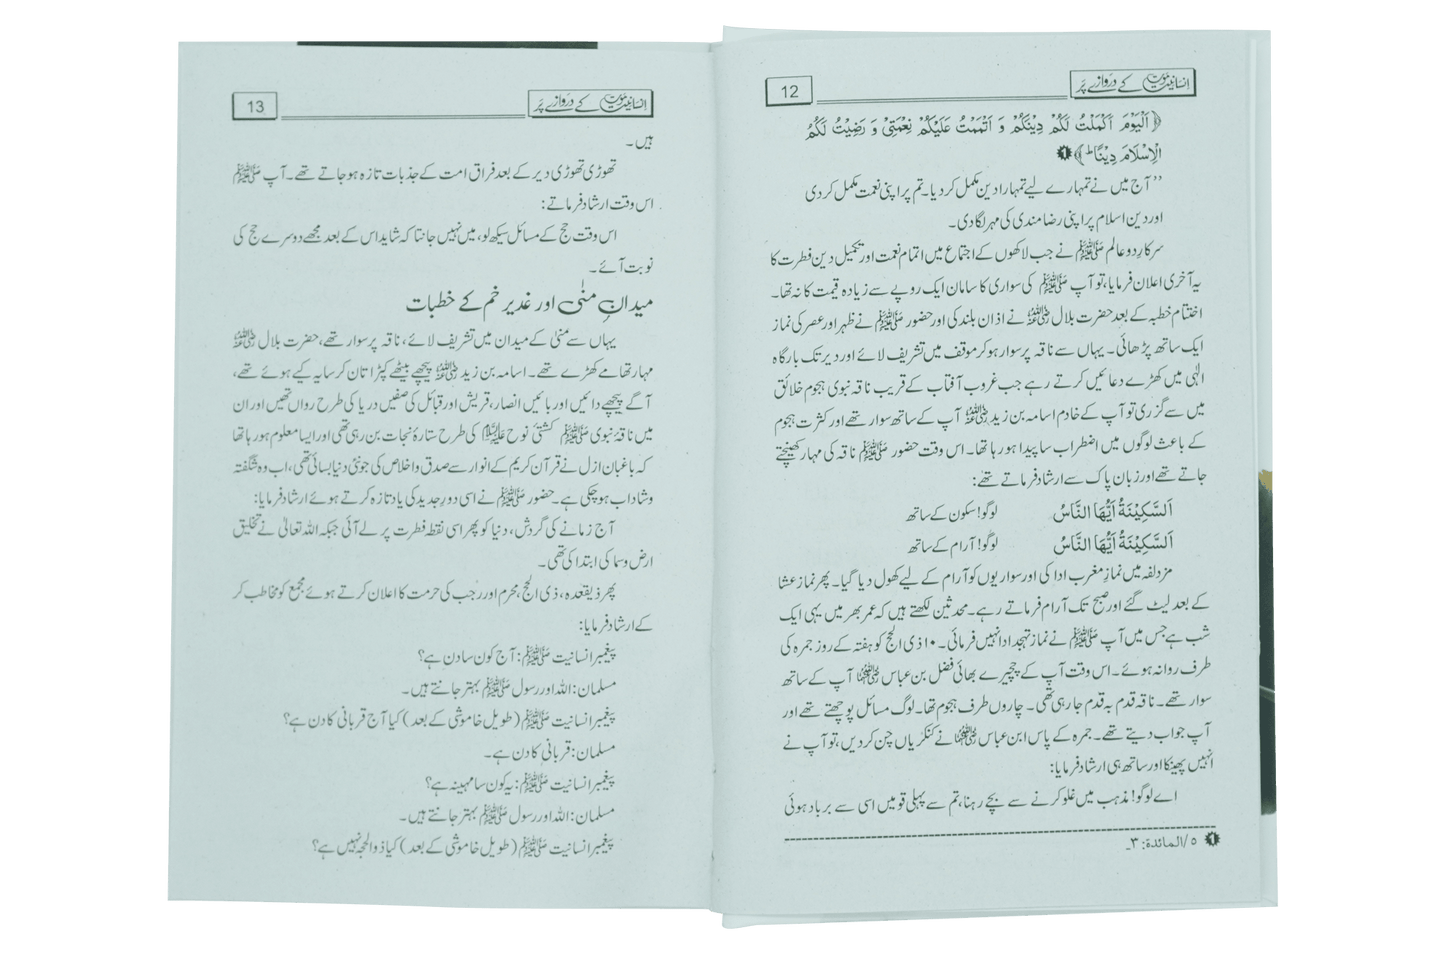 انسانیت موت کے دروازے پر
12
﴿اَلْيَوْمَ اَكْمَلْتُ لَكُمْ دِيْنَكُمْ وَ اَتْمَمْتُ عَلَيْكُمْ نِعْمَتِيْ وَ رَضِيْتُ لَكُمُ
الْاِسْلَامَ دِيْنًا ؕ ﴾❶
’’آج میں نے تمہارے لیے تمہارا دین مکمل کر دیا۔ تم پر اپنی نعمت مکمل کر دی
اور دین اسلام پر اپنی رضا مندی کی مہر لگا دی۔
سرکار دو عالم ﷺ نے جب لاکھوں کے اجتماع میں اتمام نعمت اور تکمیل دین فطرت کا
یہ آخری اعلان فرمایا، تو آپ ﷺ کی سواری کا سامان ایک روپے سے زیادہ قیمت کا نہ تھا۔
اختتام خطبہ کے بعد حضرت بلال رضی اللہ عنہ نے اذان بلند کی اور حضور ﷺ نے ظہر اور عصر کی نماز
ایک ساتھ پڑھائی۔ یہاں سے ناقہ پر سوار ہو کر موقف میں تشریف لائے اور دیر تک بارگاہ
الٰہی میں کھڑے دعائیں کرتے رہے جب غروب آفتاب کے قریب ناقہ نبوی ہجوم خلائق
میں سے گزری تو آپ کے خادم اسامہ بن زید رضی اللہ عنہ آپ کے ساتھ سوار تھے اور کثرت ہجوم
کے باعث لوگوں میں اضطراب سا پیدا ہو رہا تھا۔ اس وقت حضور ﷺ ناقہ کی مہار کھینچتے
جاتے تھے اور زبان پاک سے ارشاد فرماتے تھے:
اَلسَّكِيْنَةُ اَيُّهَا النَّاسُ لوگو! سکون کے ساتھ
اَلسَّكِيْنَةُ اَيُّهَا النَّاسُ لوگو! آرام کے ساتھ
مزدلفہ میں نماز مغرب ادا کی اور سواریوں کو آرام کے لیے کھول دیا گیا۔ پھر نماز عشا
کے بعد لیٹ گئے اور صبح تک آرام فرماتے رہے۔ محدثین لکھتے ہیں کہ عمر بھر میں یہی ایک
شب ہے جس میں آپ ﷺ نے نماز تہجد ادا نہیں فرمائی۔ ۱۰ ذی الحج کو ہفتہ کے روز جمرہ کی
طرف روانہ ہوئے۔ اس وقت آپ کے چچیرے بھائی فضل بن عباس رضی اللہ عنہما آپ کے ساتھ
سوار تھے۔ ناقہ قدم بہ قدم جا رہی تھی۔ چاروں طرف ہجوم تھا۔ لوگ مسائل پوچھتے تھے اور
آپ جواب دیتے تھے۔ جمرہ کے پاس ابن عباس رضی اللہ عنہما نے کنکریاں چن کر دیں، تو آپ نے
انہیں پھینکا اور ساتھ ہی ارشاد فرمایا:
اے لوگو! مذہب میں غلو کرنے سے بچے رہنا، تم سے پہلی قومیں اسی سے برباد ہوئی
❶ ۵/المائدة: ۳۔
انسانیت موت کے دروازے پر
13
ہیں۔
تھوڑی تھوڑی دیر کے بعد فراق امت کے جذبات تازہ ہو جاتے تھے۔ آپ ﷺ
اس وقت ارشاد فرماتے:
اس وقت حج کے مسائل سیکھ لو، میں نہیں جانتا کہ شاید اس کے بعد مجھے دوسرے حج کی
نوبت آئے۔
میدانِ منٰی اور غدیر خم کے خطبات
یہاں سے منیٰ کے میدان میں تشریف لائے، ناقہ پر سوار تھے، حضرت بلال رضی اللہ عنہ
مہار تھامے کھڑے تھے۔ اسامہ بن زید رضی اللہ عنہ پیچھے بیٹھے کپڑا تان کر سایہ کیے ہوئے تھے،
آگے پیچھے دائیں اور بائیں انصار، قریش اور قبائل کی صفیں دریا کی طرح رواں تھیں اور ان
میں ناقۂ نبوی ﷺ کشتی نوح علیہ السلام کی طرح ستارۂ نجات بن رہی تھی اور ایسا معلوم ہو رہا تھا
کہ باغبان ازل نے قرآن کریم کے انوار سے صدق و اخلاص کی جو نئی دنیا بسائی تھی، اب وہ شگفتہ
و شاداب ہو چکی ہے۔ حضور ﷺ نے اسی دور جدید کی یاد تازہ کرتے ہوئے ارشاد فرمایا:
آج زمانے کی گردش، دنیا کو پھر اسی نقطہ فطرت پر لے آئی جبکہ اللہ تعالیٰ نے تخلیق
ارض و سما کی ابتدا کی تھی۔
پھر ذیقعدہ، ذی الحج، محرم اور رجب کی حرمت کا اعلان کرتے ہوئے مجمع کو مخاطب کر
کے ارشاد فرمایا:
پیغمبر انسانیت ﷺ: آج کون سا دن ہے؟
مسلمان: اللہ اور رسول ﷺ بہتر جانتے ہیں۔
پیغمبر انسانیت ﷺ (طویل خاموشی کے بعد) کیا آج قربانی کا دن ہے؟
مسلمان: قربانی کا دن ہے۔
پیغمبر انسانیت ﷺ: یہ کون سا مہینہ ہے؟
مسلمان: اللہ اور رسول ﷺ بہتر جانتے ہیں۔
پیغمبر انسانیت ﷺ (طویل خاموشی کے بعد) کیا ذوالحجہ نہیں ہے؟